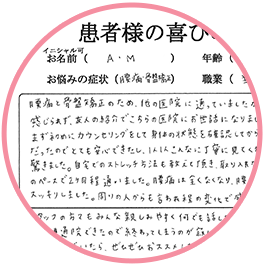 患者様の喜び
イニシャル可
お名前（ A・M ） 年齢（
お悩みの症状（腰痛・骨盤矯正） 職業（
腰痛と骨盤矯正のため、他の医院に通っていましたが
感じらず、友人の紹介でこちらの医院にお世話になりまし
まず初めにカウンセリングをして身体の状態を確認してから
だったのでとても安心できたし、1人1人こんなに丁寧に見てく
驚きました。自宅でのストレッチ方法も教えて頂き、取り入れ
のペースで2ヶ月程通いました。腰痛は全くなくなり、腰
スッキリしました。周りの人からも言われる程の変化で感
タッフの方でもみんな親しみやすく何でも話し
通院できたので終わってしまうのが
いたら、ぜひぜひおススメし